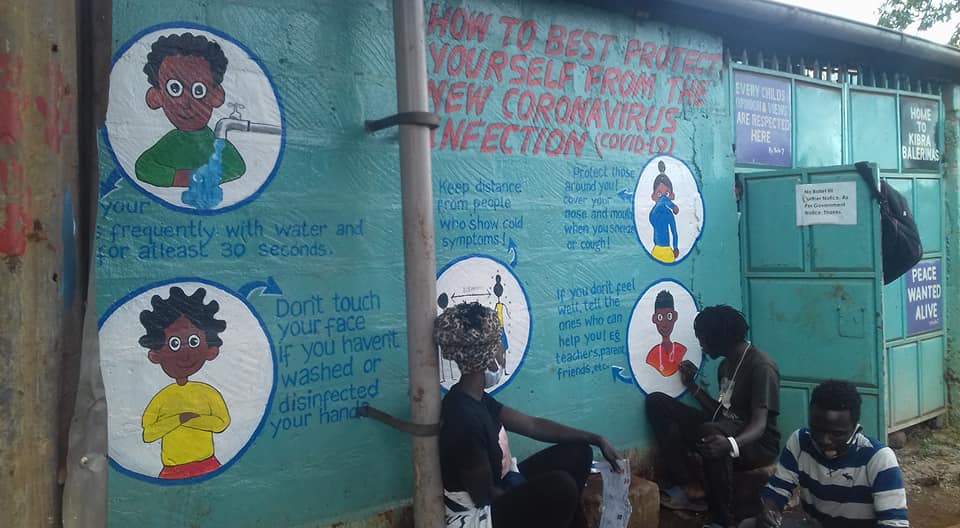 HOW TO BEST PROTECT
YOURSELF FROM THE
NEW CORONAVIRUS
INFECTION (COVID-19)
your
frequently with water and
for atleast 30 seconds.
Don't touch
your face
if you havent
washed or
disinfected
your hands
Keep distance
from people
who show cold
symptoms!
Protect those
around you!
cover your
nose and mouth
when you sneeze
or cough!
If you don't feel
well, tell the
ones who can
help you! Eg
teachers, parent,
friends, etc.
EVERY CHILDS
OPINION & VIEWS
ARE RESPECTED
HERE
HOME
TO
KIBRA
BALERINAS
No Ballet till
further Notice. As
Per Government
Notice. Thanks.
PEACE
WANTED
ALIVE